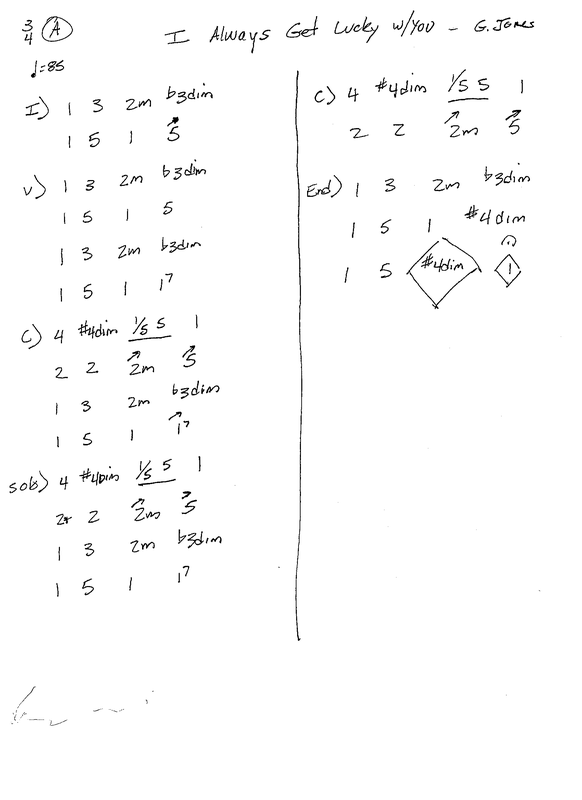 3/4 A I Always Get Lucky w/You - G. Jones
♩=85
I) 1 3 2m b3dim
1 5 1 5
V) 1 3 2m b3dim
1 5 1 5
1 3 2m b3dim
1 5 1 1⁷
C) 4 #4dim 1/5 5 1
2 2 2m 5
1 3 2m b3dim
1 5 1 1⁷
solo) 4 #4dim 1/5 5 1
2 2 2m 5
1 3 2m b3dim
1 5 1 1⁷
C) 4 #4dim 1/5 5 1
2 2 2m 5
End) 1 3 2m b3dim
1 5 1 #4dim
1 5 #4dim 1